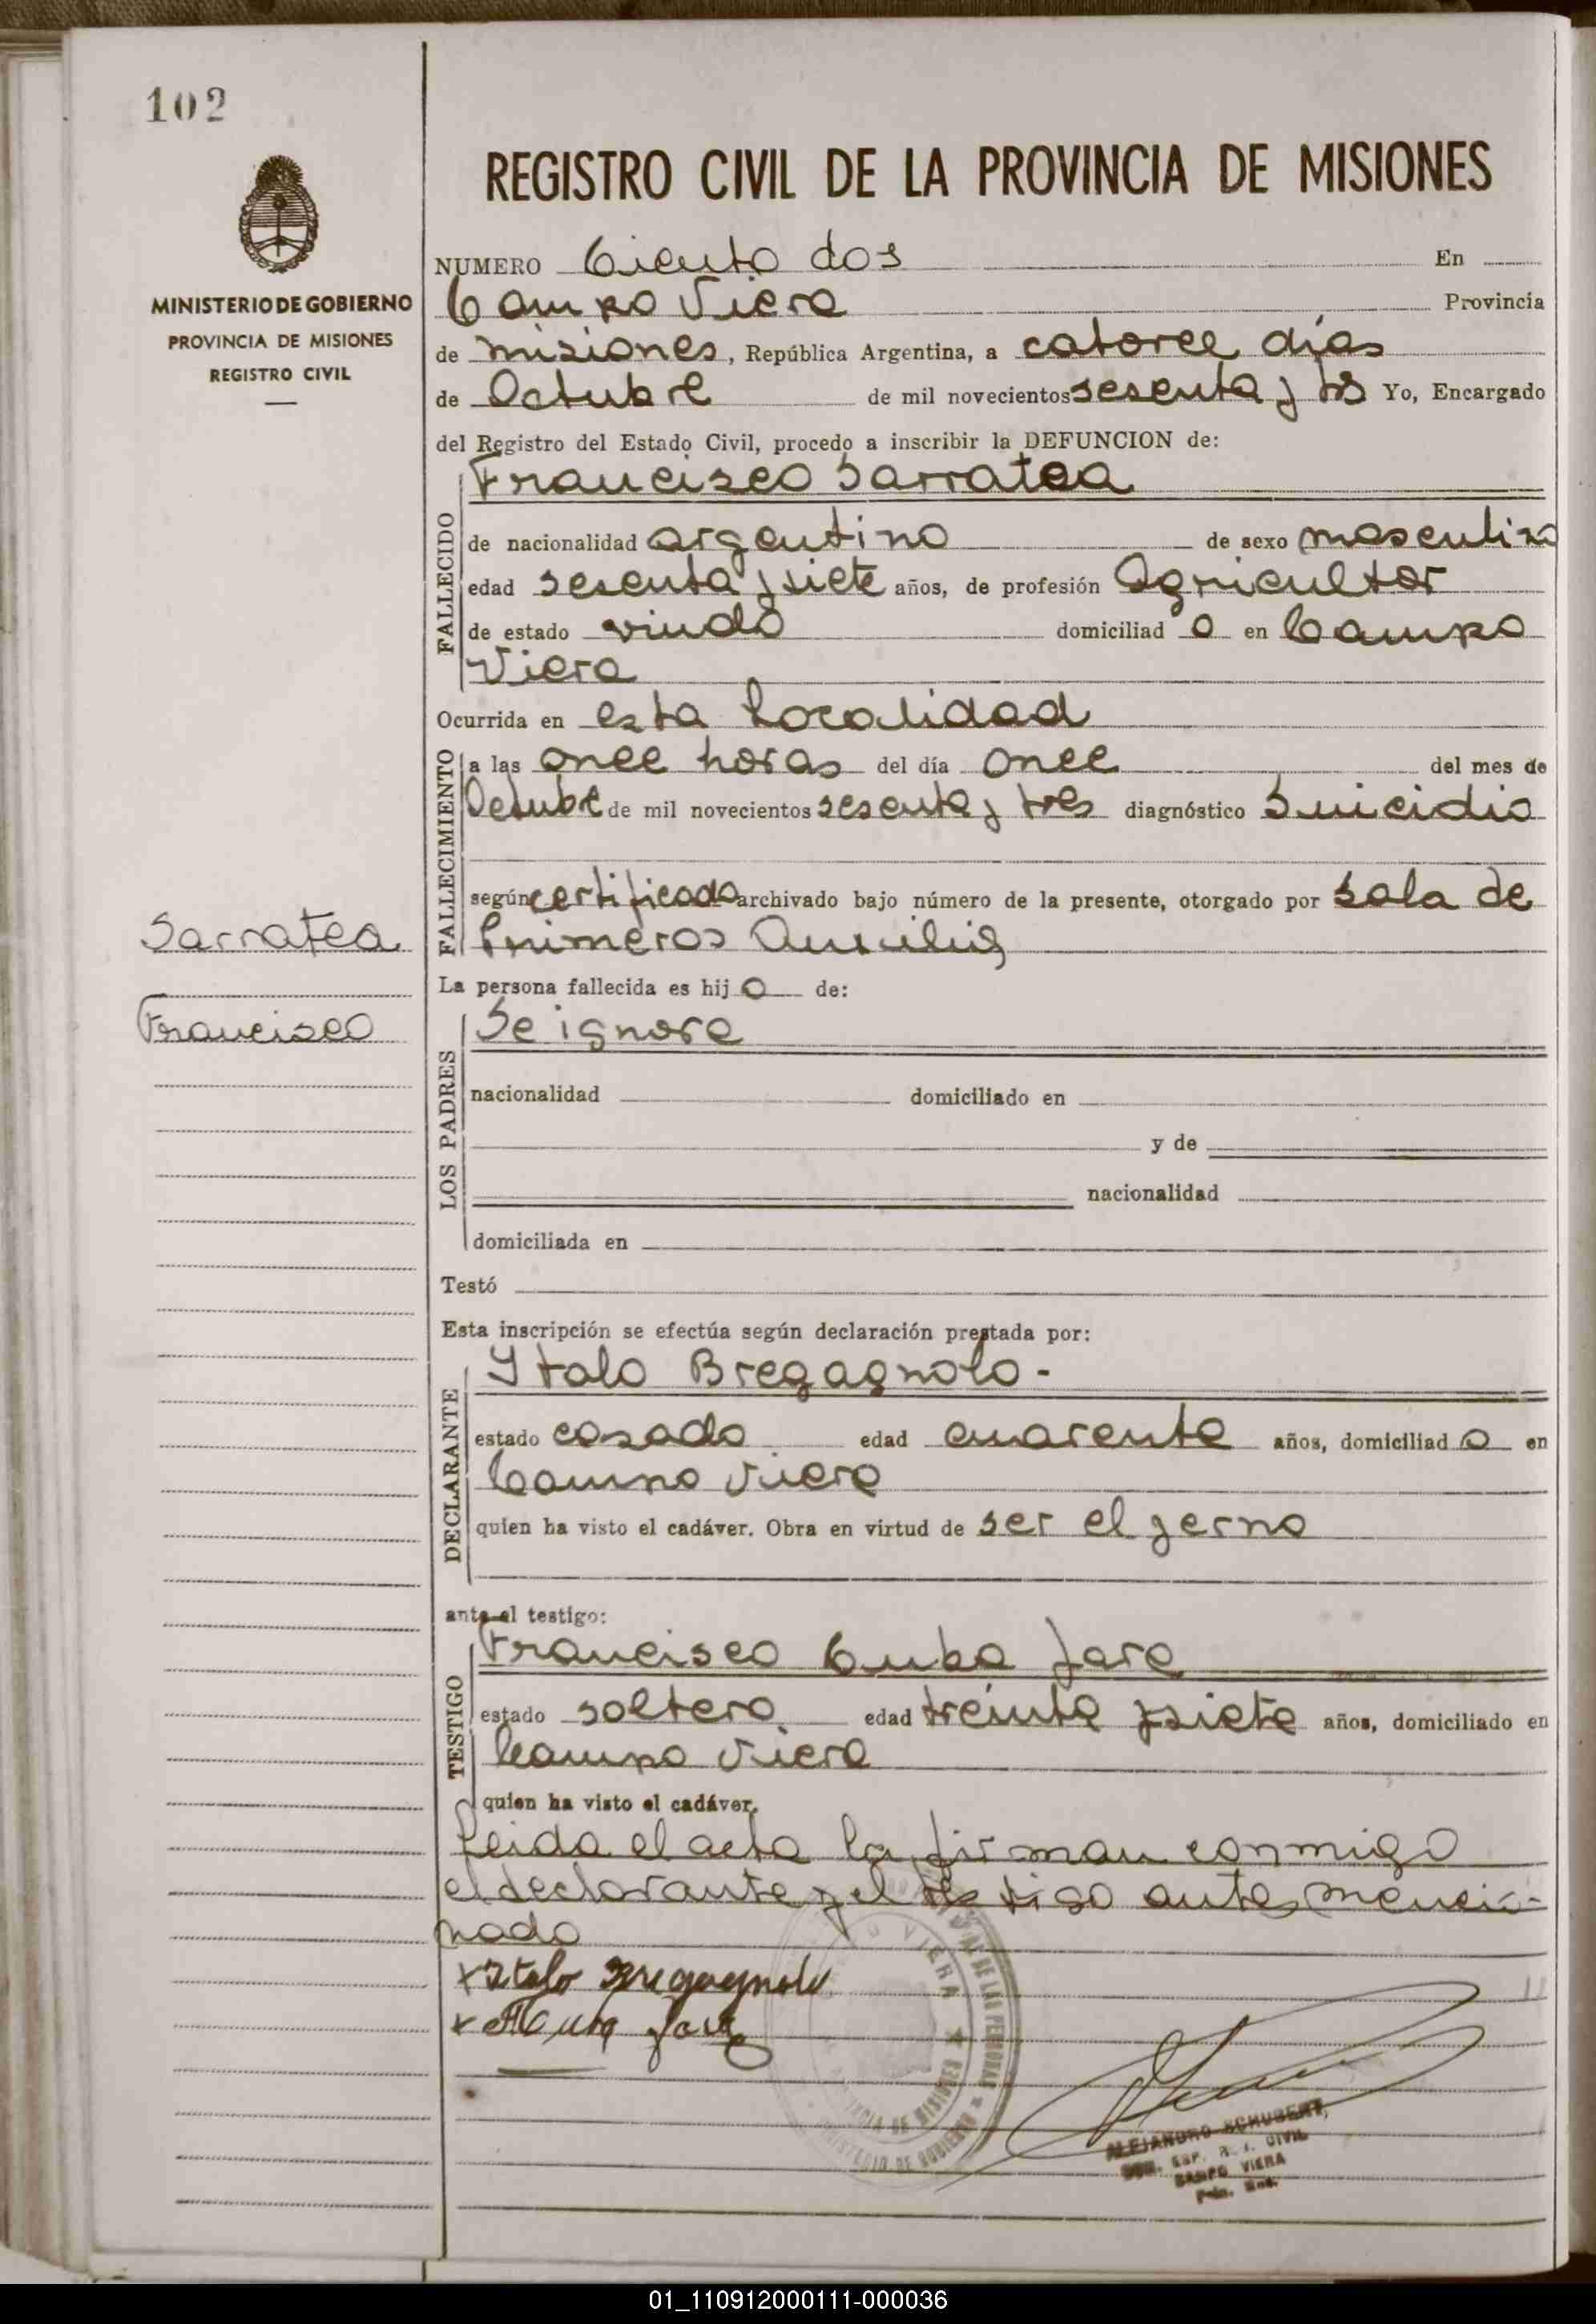 102
MINISTERIO DE GOBIERNO
PROVINCIA DE MISIONES
REGISTRO CIVIL
REGISTRO CIVIL DE LA PROVINCIA DE MISIONES
NUMERO Ciento dos En
Campo Viera Provincia
de Misiones, República Argentina, a catorce días
de Octubre de mil novecientos sesenta y tres Yo, Encargado
del Registro del Estado Civil, procedo a inscribir la DEFUNCION de:
FALLECIDO
Francisco Sarratea
de nacionalidad argentino de sexo masculino
edad sesenta y siete años, de profesión Agricultor
de estado viudo domiciliad o en Campo
Viera
Ocurrida en esta Localidad
FALLECIMIENTO
a las once horas del día once del mes de
Octubre de mil novecientos sesenta y tres diagnóstico Suicidio
según certificado archivado bajo número de la presente, otorgado por Sala de
Primeros Auxilios
Sarratea
Francisco
La persona fallecida es hij o de:
LOS PADRES
Se ignora
nacionalidad domiciliado en
y de
nacionalidad
domiciliada en
Testó
Esta inscripción se efectúa según declaración prestada por:
DECLARANTE
Italo Bregagnolo -
estado casado edad cuarenta años, domiciliad o en
Campo Viera
quien ha visto el cadáver. Obra en virtud de ser el yerno
ante el testigo:
TESTIGO
Francisco Cuba Jara
estado soltero edad treinta y siete años, domiciliado en
Campo Viera
quien ha visto el cadáver.
Leida el acta la firman conmigo
el declarante y el testigo antes mencio-
nado
x Italo Bregagnolo
Cuba Jara
VIERA
DE LAS PERSONAS
DE MISIONES
DE GOBIERNO
ALEJANDRO SCHUBERT
CIVIL
CAMPO VIERA
01_110912000111-000036